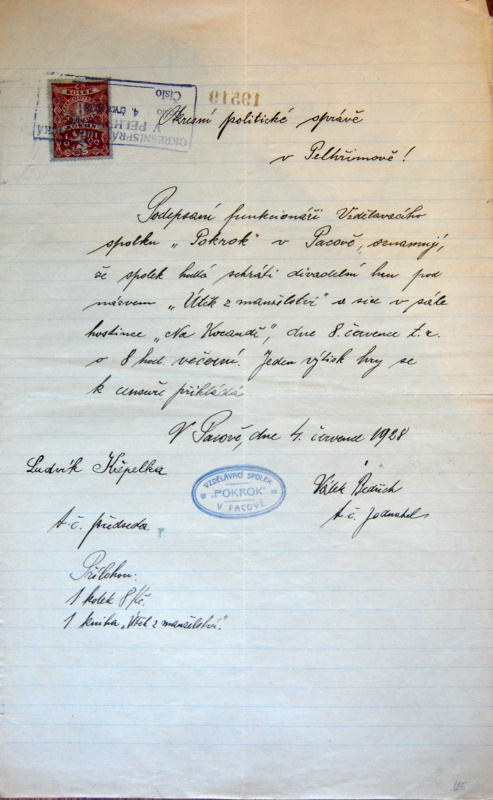 19519
ČS
KOLEK
OKRESNÍ SPRÁ
V PELH
4. čtvr
Číslo
Okresní politické správě
v Pelhřimově!
Podepsaní funkcionáři Vzdělavacího
spolku „Pokrok" v Pacově, oznamují,
že spolek hodlá sehráti divadelní hru pod
názvem „Útěk z manželství" a sice v sále
hostince „Na Korandě", dne 8. července t. r.
o 8 hod. večerní. Jeden výtisk hry se
k censuře přikládá
V Pacově, dne 4. července 1928
Ludvík Křepelka
t. č. předseda
VZDĚLÁVACÍ SPOLEK
"POKROK"
V PACOVĚ
Válek Bedřich
t. č. Jednatel
Přílohou:
1 kolek 8 Kč.
1 kniha „Útěk z manželství".